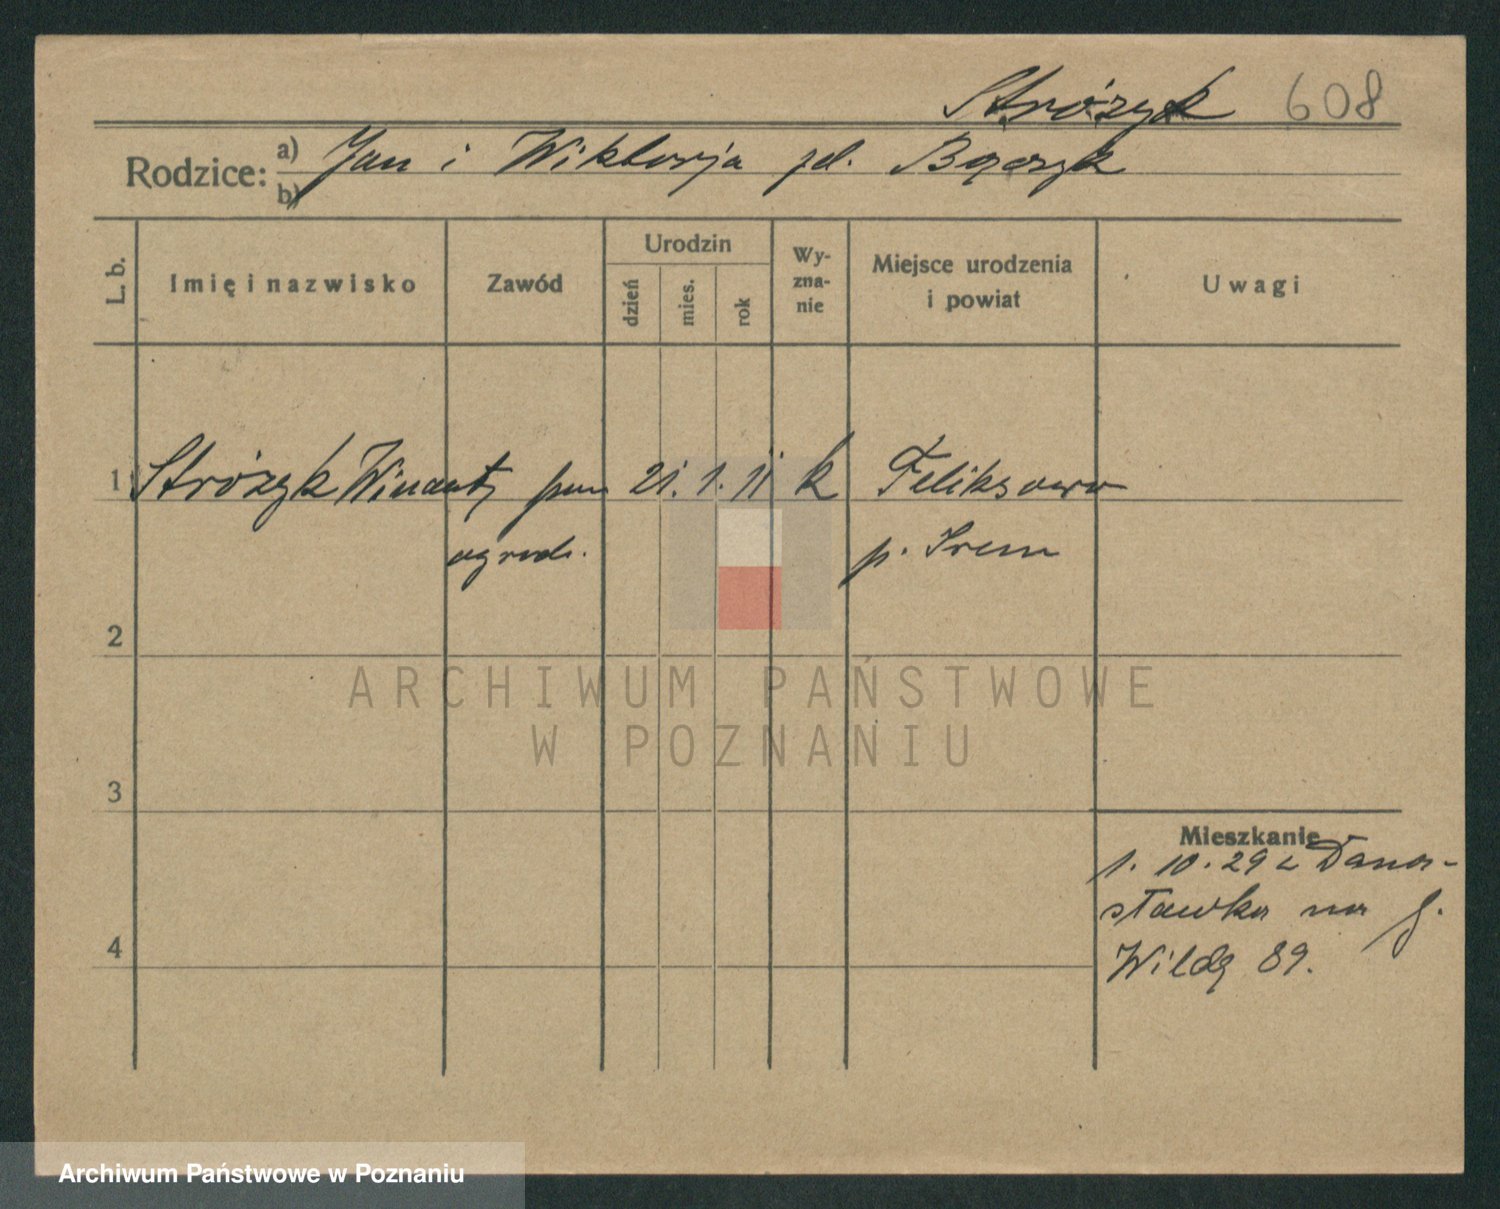 Stróżyk 608
Rodzice: a) Jan i Wiktorja zd. Bączyk
b)
L. b. Imię i nazwisko Zawód Urodzin dzień mies. rok Wy-zna-nie Miejsce urodzenia i powiat Uwagi
1 Stróżyk Winanty pom 21. 1. 11 k Feliksowo
ogrodn. p. Śrem
2
ARCHIWUM PAŃSTWOWE
W POZNANIU
3
Mieszkanie
1. 10. 29 z
stawka na g.
4 Wildę 89.
Archiwum Państwowe w Poznaniu